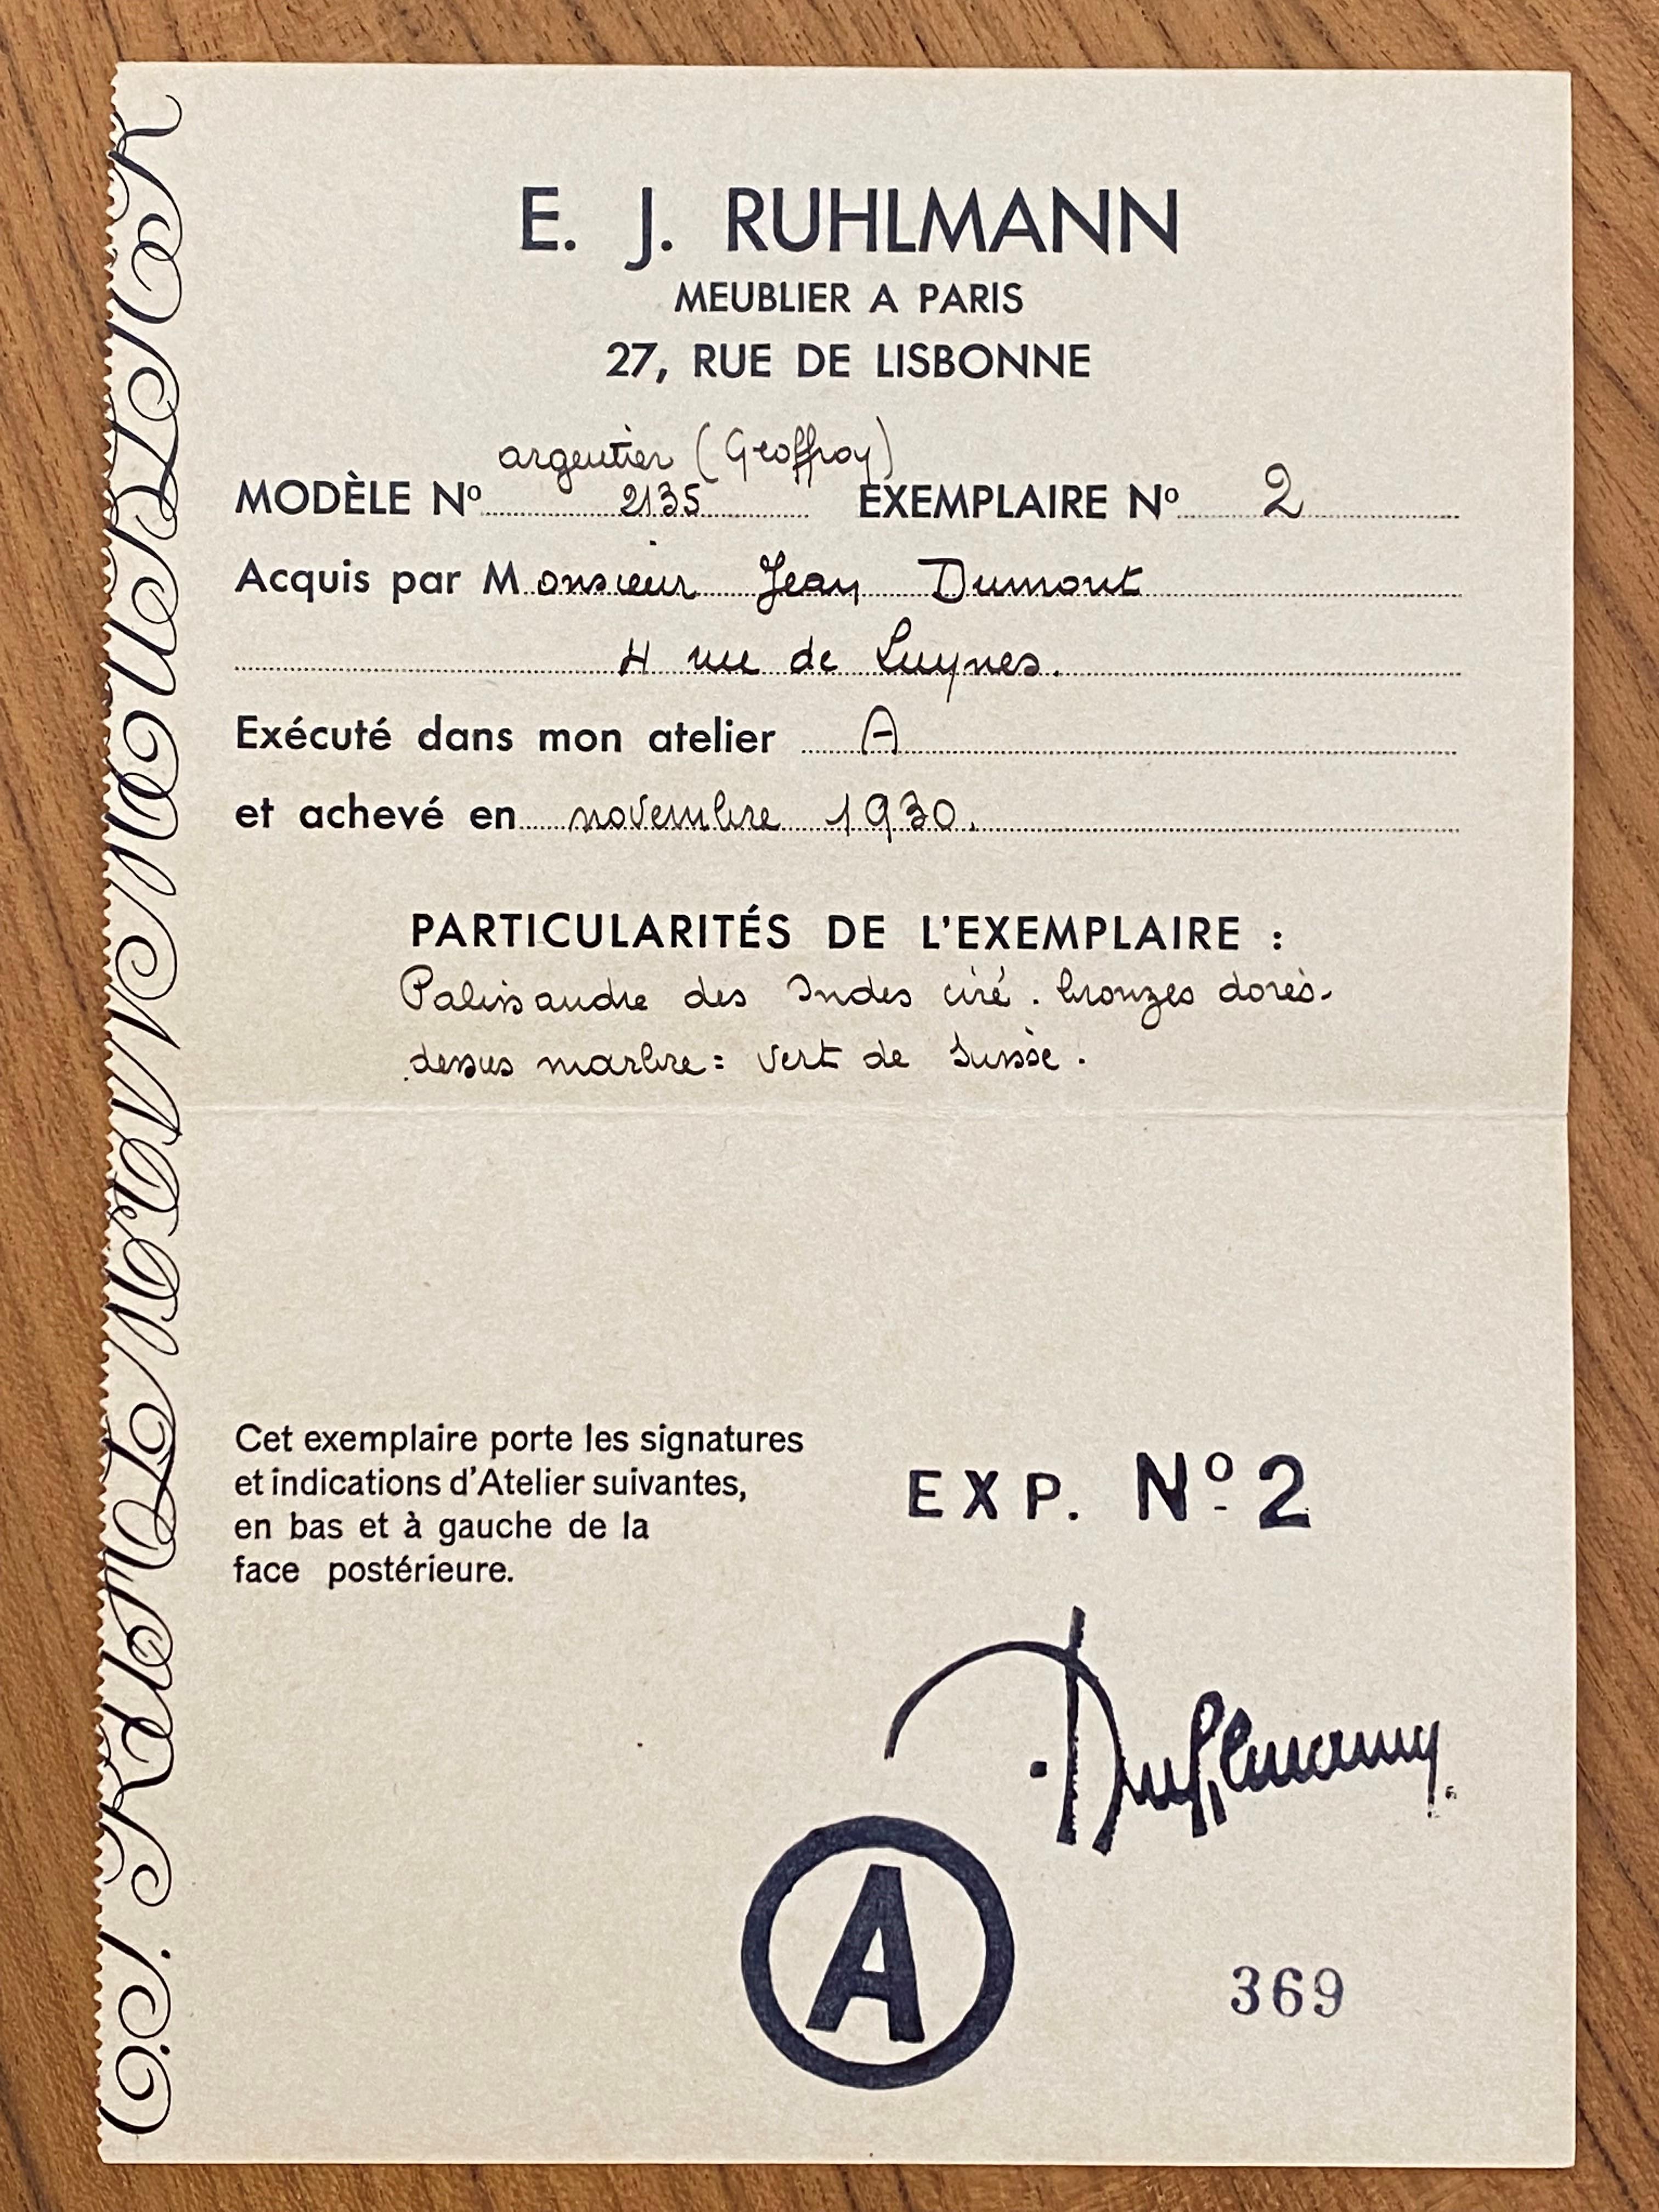 E. J. RUHLMANN
MEUBLIER A PARIS
27, RUE DE LISBONNE
argentier (Geoffroy)
MODÈLE Nº 2135 EXEMPLAIRE Nº 2
Acquis par Monsieur Jean Dumont
4 rue de Luynes.
Exécuté dans mon atelier A
et achevé en novembre 1930.
PARTICULARITÉS DE L'EXEMPLAIRE :
Palissandre des Indes ciré. bronzes dorés.
dessus marbre = vert de Suisse.
Cet exemplaire porte les signatures
et indications d'Atelier suivantes,
en bas et à gauche de la
face postérieure.
EXP. Nº 2
Ruhlmann
A
369